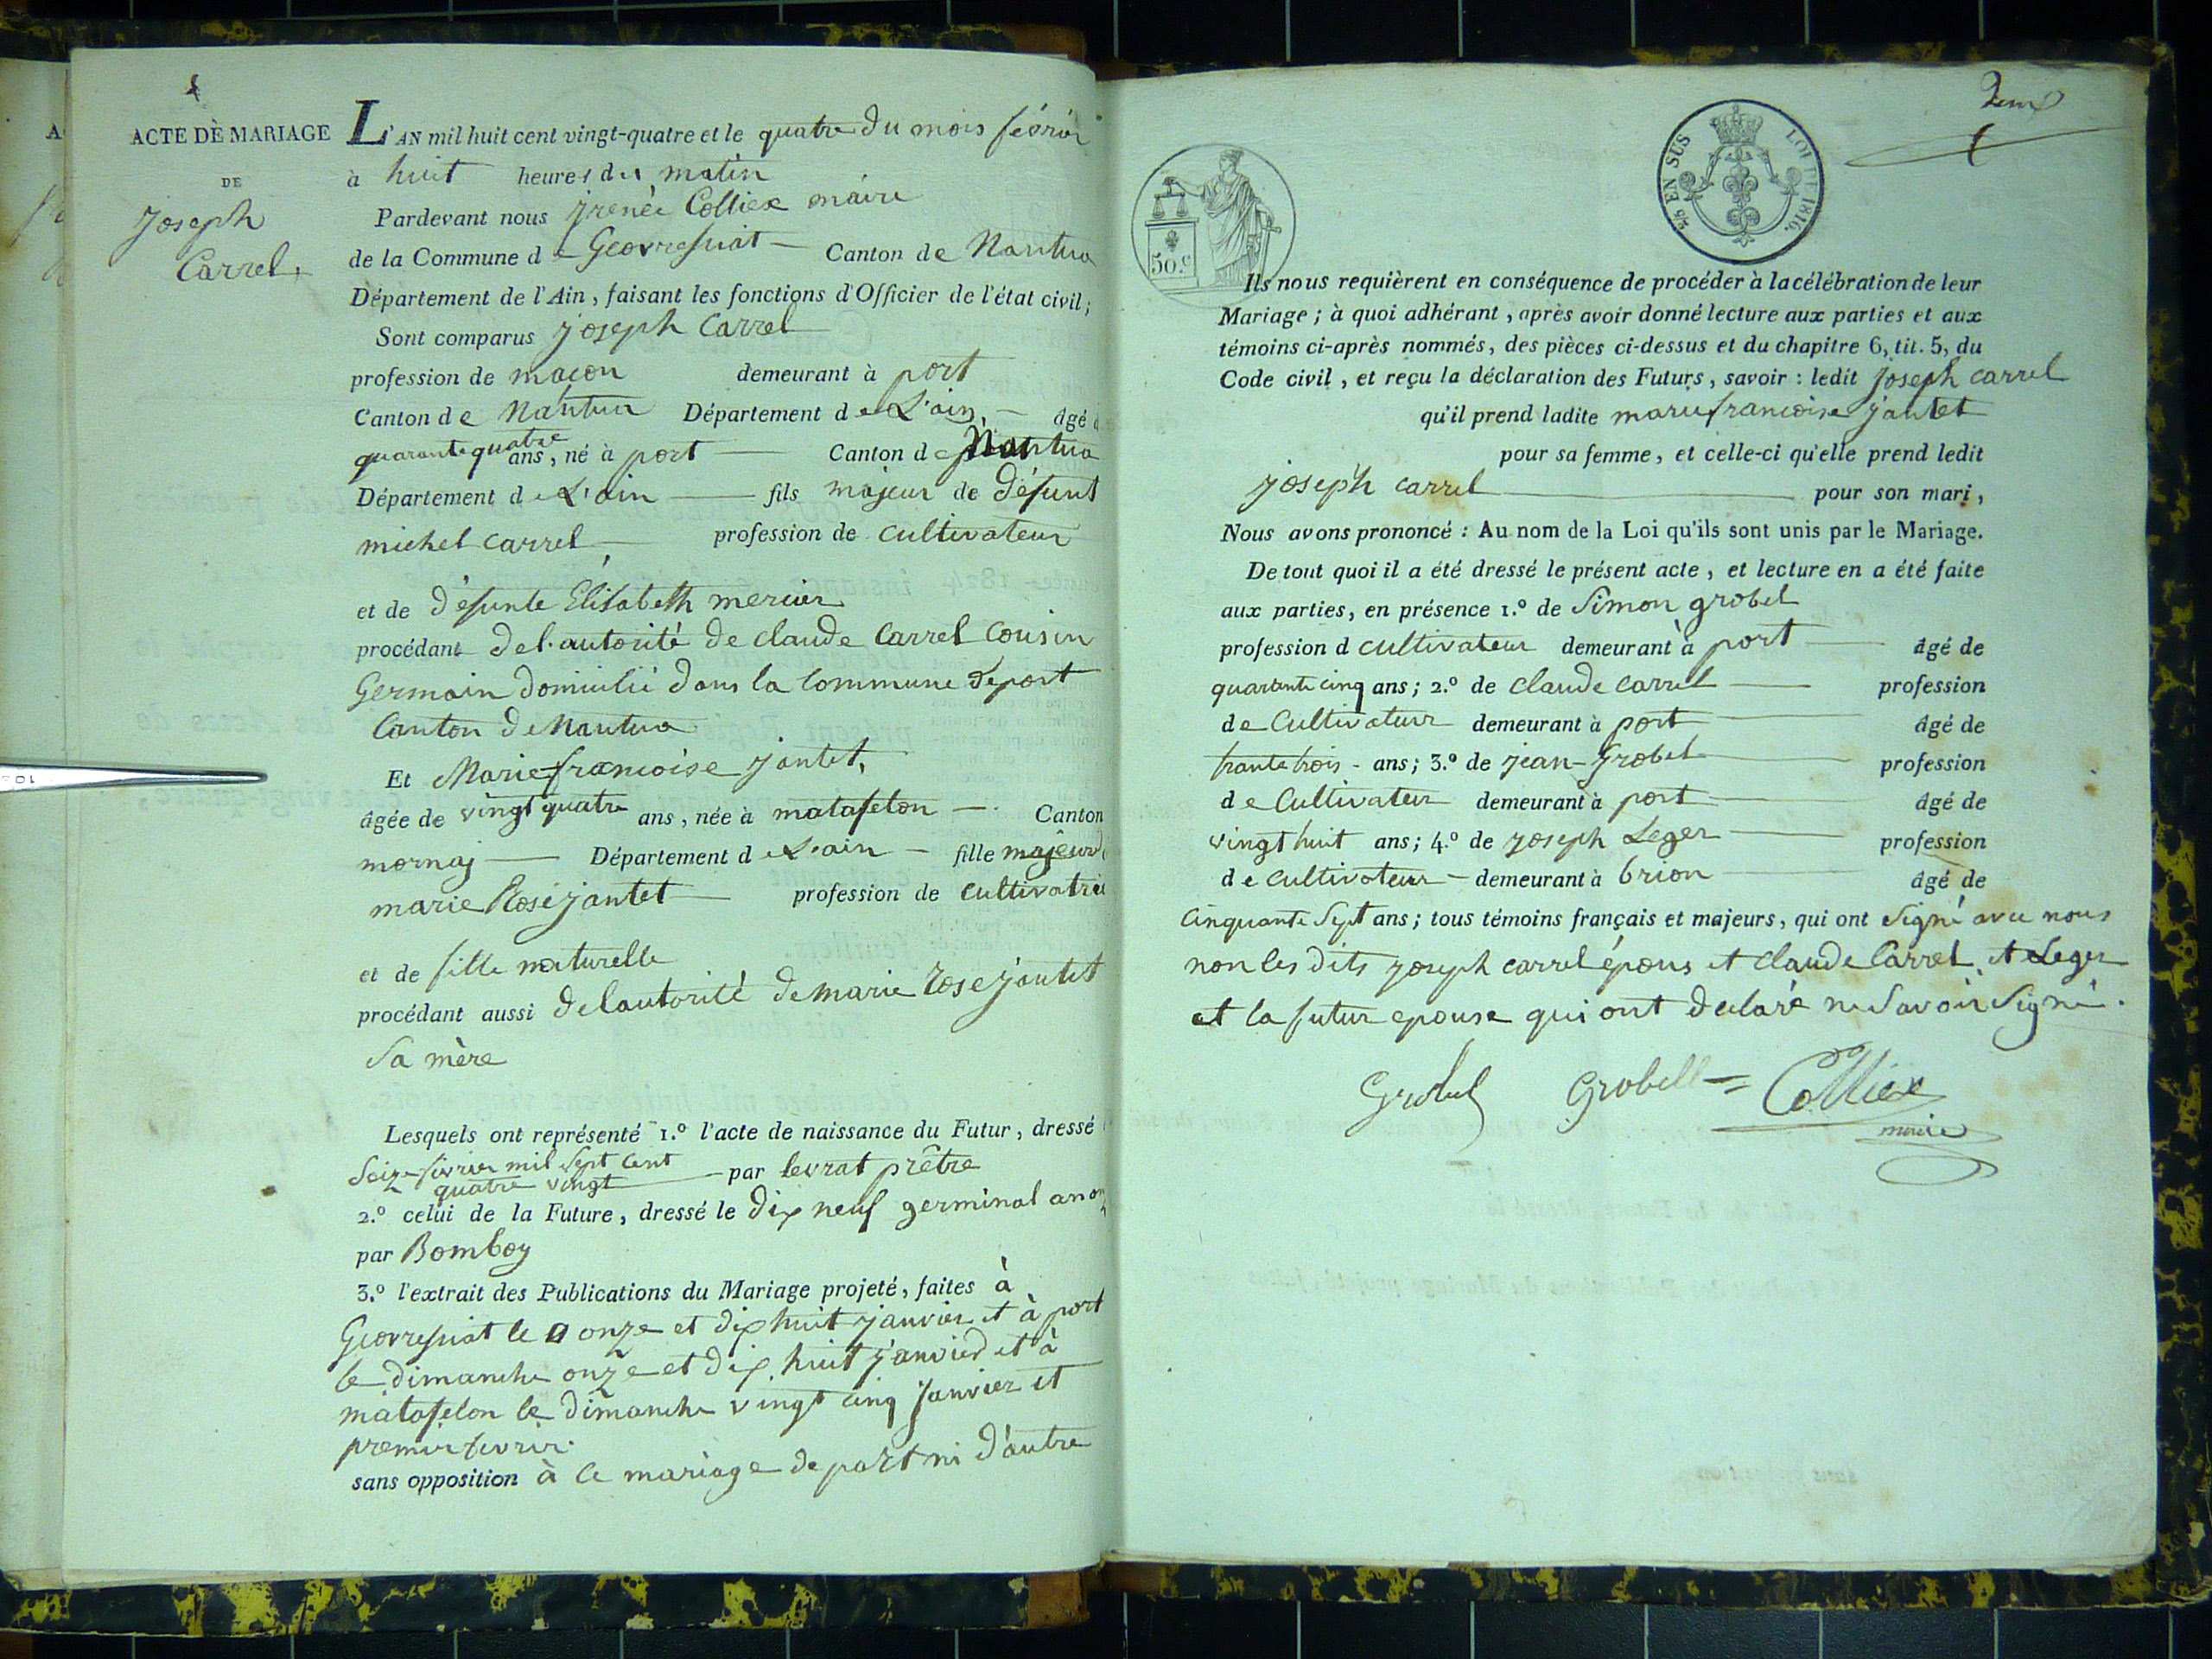 ACTE DE MARIAGE
DE
Joseph
Carrel,
L'AN mil huit cent vingt-quatre et le quatre du mois février
à huit heures du matin
Pardevant nous jrenée Colliex maire
de la Commune de Geovressiat Canton de Nantua
Département de l'Ain, faisant les fonctions d'Officier de l'état civil;
Sont comparus joseph Carrel
profession de maçon demeurant à port
Canton de Nantua Département de L'ain, âgé
quarante quatre ans, né à port Canton de Nantua
Département de L'ain fils majeur de défunt
michel carrel, profession de cultivateur
et de défunte Élisabeth mercier
procédant de l'autorité de claude Carrel Cousin
Germain domicilié dans la Commune de port
Canton de Nantua
Et Marie françoise jantet,
âgée de vingt quatre ans, née à matafelon Canton
mornaj Département de L'ain fille majeur
marie Rose jantet profession de cultivatrice
et de fille naturelle
procédant aussi de l'autorité de marie rose jantet
Sa mère
Lesquels ont représenté 1.º l'acte de naissance du Futur, dressé
Seize février mil Sept Cent
quatre vingt par levrat prêtre
2.º celui de la Future, dressé le dix neuf germinal an
par Bomboy
3.º l'extrait des Publications du Mariage projeté, faites à
Geovressiat le onze et dix huit janvier et à port
le dimanche onze et dix huit janvier et à
matafelon le dimanche vingt cinq Janvier et
premier fevrier.
sans opposition à ce mariage de part ni d'autre
2eme
25 EN SUS LOI DE 1816.
50.c
Ils nous requièrent en conséquence de procéder à la célébration de leur
Mariage; à quoi adhérant, après avoir donné lecture aux parties et aux
témoins ci-après nommés, des pièces ci-dessus et du chapitre 6, tit. 5, du
Code civil, et reçu la déclaration des Futurs, savoir: ledit joseph carrel
qu'il prend ladite marie francoise jantet
pour sa femme, et celle-ci qu'elle prend ledit
joseph carrel pour son mari,
Nous avons prononcé: Au nom de la Loi qu'ils sont unis par le Mariage.
De tout quoi il a été dressé le présent acte, et lecture en a été faite
aux parties, en présence 1.º de Simon grobel
profession d cultivateur demeurant à port âgé de
quarante cinq ans; 2.º de claude carrel profession
de Cultivateur demeurant à port âgé de
trante trois ans; 3.º de jean Grobel profession
de Cultivateur demeurant à port âgé de
vingt huit ans; 4.º de joseph Leger profession
de cultivateur demeurant à brion âgé de
Cinquante Sept ans; tous témoins français et majeurs, qui ont Signé avec nous
non les dits joseph carrel épous et claude Carrel et Leger
et la futur epouse qui ont declaré ne Savoir Signé.
Grobel Grobell Colliex
maire